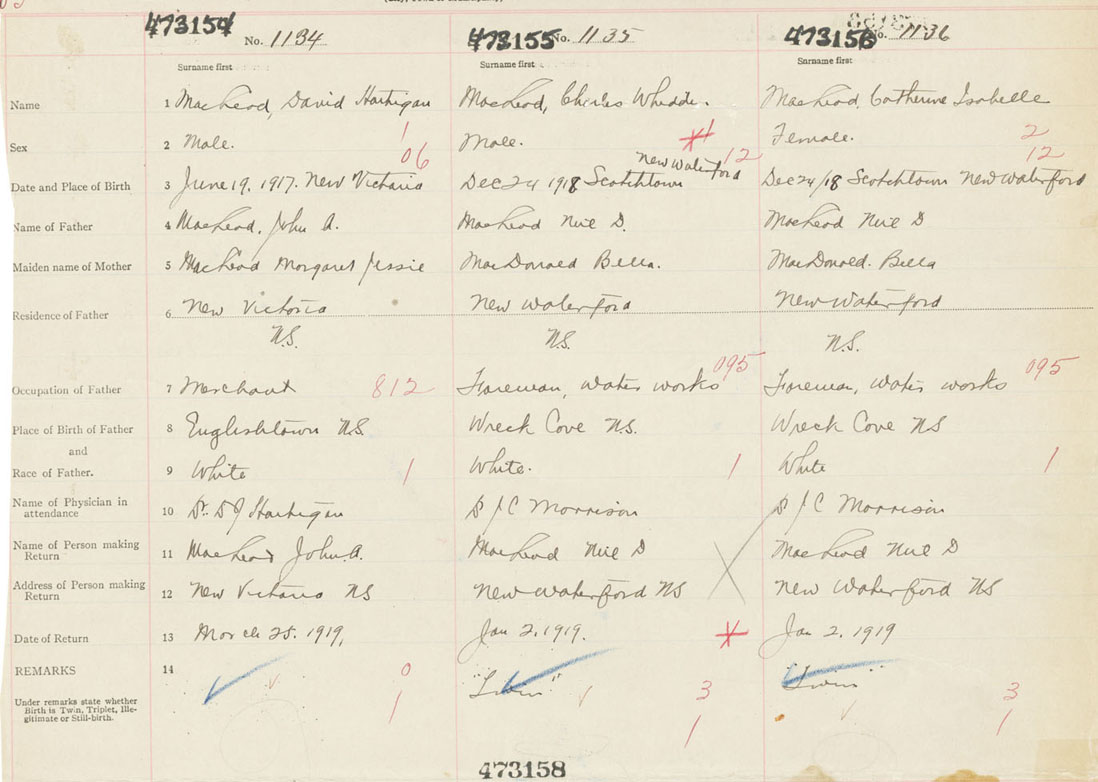 473154 No. 1134 473155 No. 1135 473156 No. 1136
Surname first Surname first Surname first
Name 1 MacLeod, David Hartigan MacLeod, Charles MacLeod, Catherine Isabelle
Sex 2 Male. 1 Male. 1 Female. 2
06 New Waterford 12 12
Date and Place of Birth 3 June 19, 1917. New Victoria Dec 24 1918 Scotchtown Dec 24/18 Scotchtown New Waterford
Name of Father 4 MacLeod, John A. MacLeod Neil D. MacLeod Neil D
Maiden name of Mother 5 MacLeod Margaret Jessie MacDonald Bella. MacDonald. Bella
Residence of Father 6 New Victoria New Waterford New Waterford
N.S. N.S. N.S.
Occupation of Father 7 Merchant 812 Foreman, water works 095 Foreman, water works 095
Place of Birth of Father 8 Englishtown N.S. Wreck Cove N.S. Wreck Cove NS
and
Race of Father. 9 White 1 White. 1 White 1
Name of Physician in
attendance 10 Dr. D J Hartigan Dr J C Morrison Dr J C Morrison
Name of Person making
Return 11 MacLeod John A. MacLeod Neil D MacLeod Neil D
Address of Person making
Return 12 New Victoria NS New Waterford NS New Waterford NS
Date of Return 13 March 25. 1919, Jan 2, 1919. Jan 2, 1919
REMARKS 14 0 "Twin" "Twin"
Under remarks state whether
Birth is Twin, Triplet, Ille-
gitimate or Still-birth. 1 3 3
1 1
473158